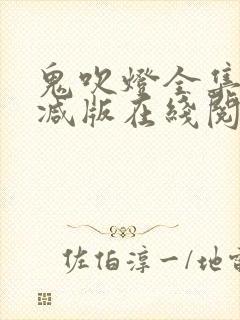 鬼吹燈全集
减版在綫閱
佐伯淳一/地